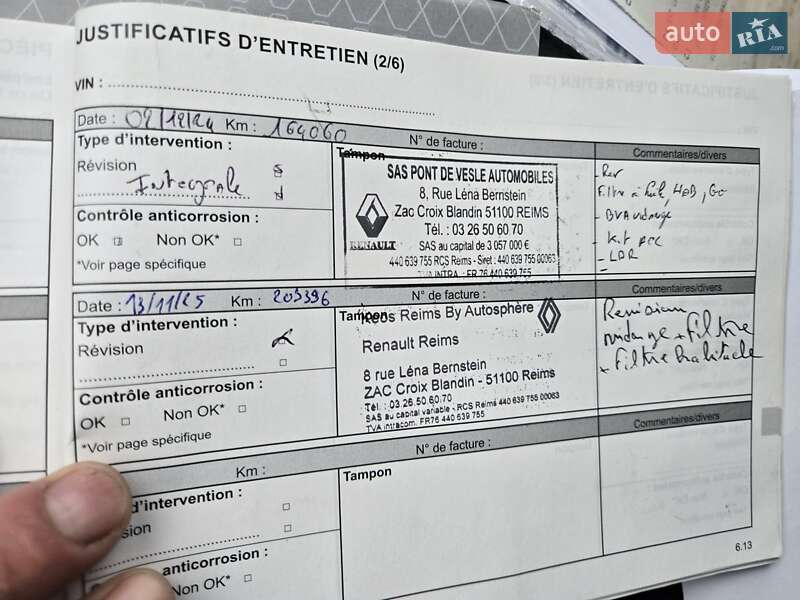 auto RIA
JUSTIFICATIFS D'ENTRETIEN (2/6)
VIN :
Date : 02/12/24 Km : 164060
N° de facture :
Type d'intervention :
Révision
Intégrale
Contrôle anticorrosion :
OK Non OK*
*Voir page spécifique
Tampon
SAS PONT DE VESLE AUTOMOBILES
8, Rue Léna Bernstein
Zac Croix Blandin 51100 REIMS
Tél. : 03 26 50 60 70
SAS au capital de 3 057 000 €
440 639 755 RCS Reims - Siret : 440 639 755 00063
TVA INTRA : FR 76 440 639 755
RENAULT
Commentaires/divers
- Rev
Filtre à huile, HAB, GO
- BVA vidange
- Kit
- LDR
Date : 13/11/25 Km : 203396
N° de facture :
Type d'intervention :
Révision
Contrôle anticorrosion :
OK Non OK*
*Voir page spécifique
Tampon
Keos Reims By Autosphère
Renault Reims
8 rue Léna Bernstein
ZAC Croix Blandin - 51100 Reims
Tél. : 03.26.50.60.70
SAS au capital variable - RCS Reims 440 639 755 00063
TVA intracom. FR76 440 639 755
Commentaires/divers
Revision
vidange + Filtre
+ Filtre habitacle
Km :
N° de facture :
d'intervention :
sion
anticorrosion :
Non OK*
Tampon
Commentaires/divers
6.13